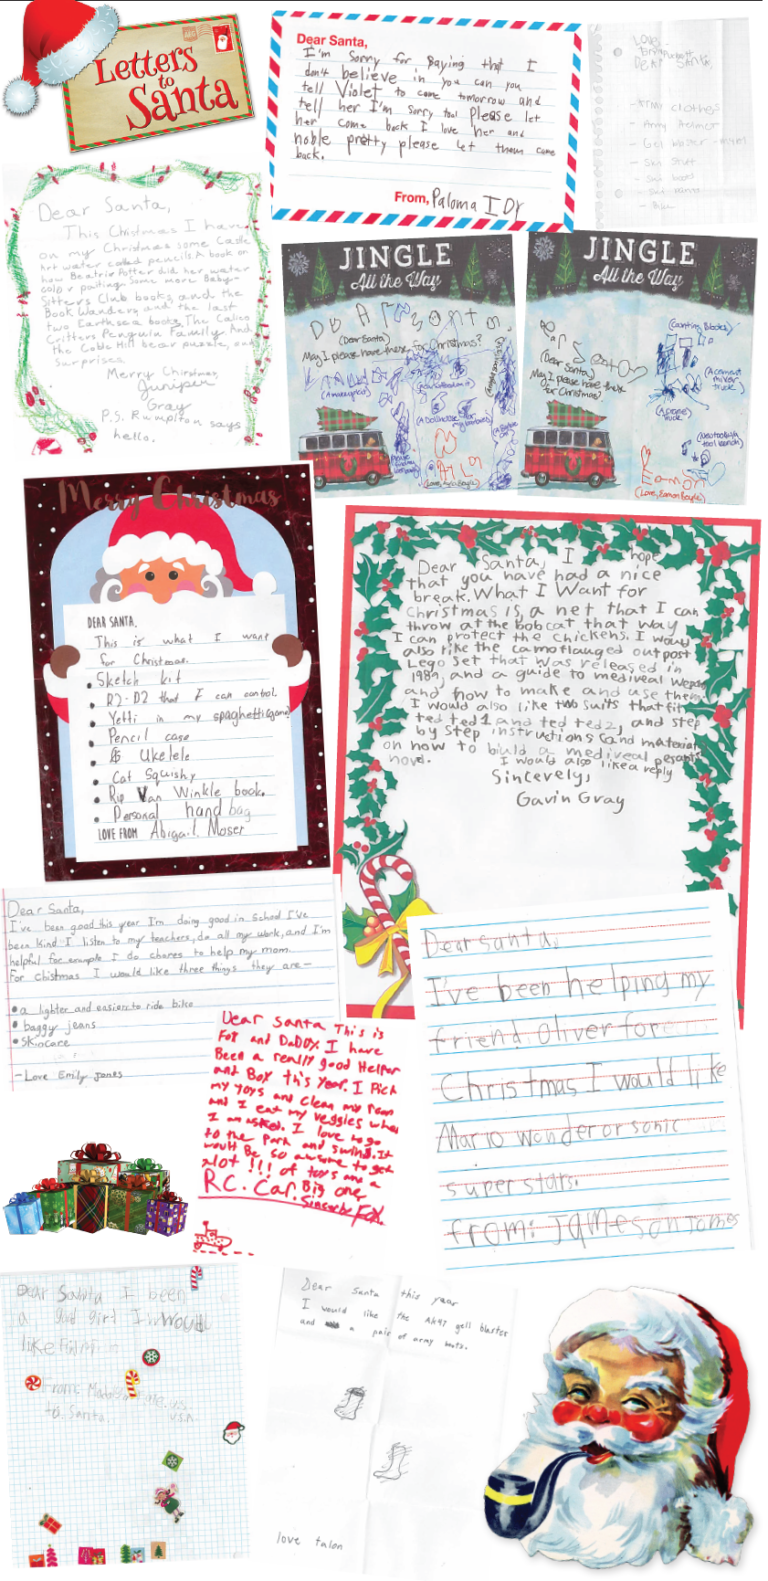 Letters
to
Santa
Dear Santa,
I'm Sorry for Saying that I
don't believe in you can you
tell Violet to come tomorrow and
tell her I'm sorry too! Please let
her come back I love her and
noble pretty please let them come
back.
From, Paloma I Dy
Love,
Dear Santa,
- Army clothes
- Army Helmet
- Ski stuff
- Ski boots
Dear Santa,
This Christmas I have
on my Christmas some Castle
Art water colled pencils. A book on
how Beatrix Potter did her water
color paiting. Some more Baby-
Sitters Club books, and the
Book Wandery and the last
two Earthsea books. The Calico
Critters Penguin Family. And
the Cobble Hill bear puzzle, and
surprises
Merry Christmas,
Juniper
Gray
P.S. Rumplton says
hello.
JINGLE
All the Way
(Dear Santa)
May I please have these for Christmas?
JINGLE
All the Way
(Dear Santa)
May I please have these
for Christmas?
(Love, Eamon Boyle)
Merry Christmas
DEAR SANTA,
This is what I want
for Christmas.
• Sketch kit
• R2-D2 that I can control.
• Yetti in my spaghetti (game)
• Pencil case
• Ukelele
• Cat Squishy
• Rip Van Winkle book.
• Personal hand bag
LOVE FROM Abigail Moser
Dear Santa, I hope
that you have had a nice
break. What I Want for
Christmas is, a net that I can
throw at the bobcat that way
I can protect the chickens. I would
also like the camoflauged outpost
Lego set that was released in
1987, and a guide to medival weapons
and how to make and use them.
I would also like two suits that fit
ted ted 1 and ted ted 2, and step
by step instructions (and material)
on how to biuld a medival pesants
hovel. I would also like a reply
Sincerely,
Gavin Gray
Dear Santa,
I've been good this year I'm doing good in school I've
been kind I listen to my teachers, do all my work, and I'm
helpful for example I do chores to help my mom.
For chistmas I would like three things they are-
• a lighter and easier to ride bike
• baggy jeans
• skincare
-Love Emily Jones
Dear Santa This is
Fox and DaDDy. I have
Been a really good Helper
and Boy this year. I Pick
my toys and clean my room
and I eat my veggies when
I am asked. I love to go
to the park and swing. It
would Be so awsome to get
Alot !!! of toys and a
R.C. Car. Big one,
Sincerely Fox.
Dear santa,
I've been helping my
friend Oliver for
Christmas I would like
Mario wonder or sonic
superstars.
from: Jameson Jomes
Dear Santa I been
a god girl I Would
like
From: Mad
to. Santa.
Dear Santa this year
I would like the AK47 gell blaster
and a pair of army boots.
love talon